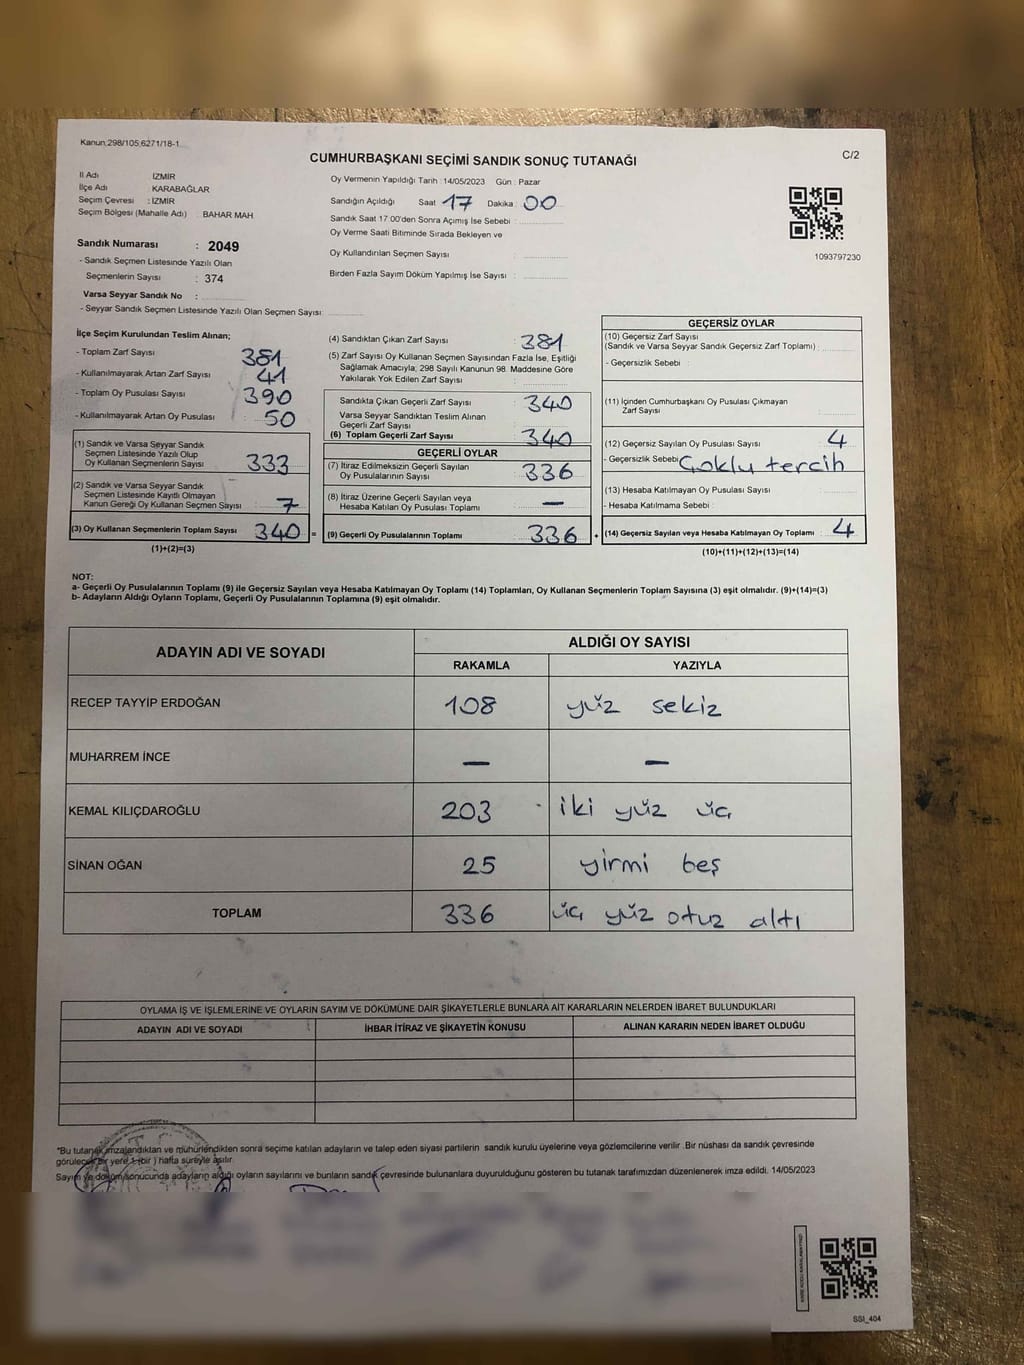 Kanun;298/105;6271/18-1
CUMHURBAŞKANI SEÇİMİ SANDIK SONUÇ TUTANAĞI
C/2
İl Adı İZMİR
İlçe Adı : KARABAĞLAR
Seçim Çevresi : İZMİR
Seçim Bölgesi (Mahalle Adı) : BAHAR MAH
Sandık Numarası : 2049
- Sandık Seçmen Listesinde Yazılı Olan
Seçmenlerin Sayısı : 374
Varsa Seyyar Sandık No :
- Seyyar Sandık Seçmen Listesinde Yazılı Olan Seçmen Sayısı:
Oy Vermenin Yapıldığı Tarih : 14/05/2023 Gün : Pazar
Sandığın Açıldığı Saat 17 Dakika : 00
Sandık Saat 17:00'den Sonra Açımış İse Sebebi :
Oy Verme Saati Bitiminde Sırada Bekleyen ve
Oy Kullandırılan Seçmen Sayısı :
Birden Fazla Sayım Döküm Yapılmış İse Sayısı :
1093797230
İlçe Seçim Kurulundan Teslim Alınan;
- Toplam Zarf Sayısı 381
- Kullanılmayarak Artan Zarf Sayısı : 41
- Toplam Oy Pusulası Sayısı : 390
- Kullanılmayarak Artan Oy Pusulası : 50
(1) Sandık ve Varsa Seyyar Sandık
Seçmen Listesinde Yazılı Olup
Oy Kullanan Seçmenlerin Sayısı : 333
(2) Sandık ve Varsa Seyyar Sandık
Seçmen Listesinde Kayıtlı Olmayan
Kanun Gereği Oy Kullanan Seçmen Sayısı : 7
(3) Oy Kullanan Seçmenlerin Toplam Sayısı : 340 =
(1)+(2)=(3)
(4) Sandıktan Çıkan Zarf Sayısı : 381
(5) Zarf Sayısı Oy Kullanan Seçmen Sayısından Fazla İse, Eşitliği
Sağlamak Amacıyla; 298 Sayılı Kanunun 98. Maddesine Göre
Yakılarak Yok Edilen Zarf Sayısı :
Sandıkta Çıkan Geçerli Zarf Sayısı : 340
Varsa Seyyar Sandıktan Teslim Alınan
Geçerli Zarf Sayısı :
(6) Toplam Geçerli Zarf Sayısı : 340
GEÇERLİ OYLAR
(7) İtiraz Edilmeksizin Geçerli Sayılan
Oy Pusulalarının Sayısı : 336
(8) İtiraz Üzerine Geçerli Sayılan veya
Hesaba Katılan Oy Pusulası Toplamı : —
(9) Geçerli Oy Pusulalarının Toplamı : 336 +
GEÇERSİZ OYLAR
(10) Geçersiz Zarf Sayısı
(Sandık ve Varsa Seyyar Sandık Geçersiz Zarf Toplamı) :
- Geçersizlik Sebebi :
(11) İçinden Cumhurbaşkanı Oy Pusulası Çıkmayan
Zarf Sayısı :
(12) Geçersiz Sayılan Oy Pusulası Sayısı : 4
- Geçersizlik Sebebi : Çoklu tercih
(13) Hesaba Katılmayan Oy Pusulası Sayısı :
- Hesaba Katılmama Sebebi :
(14) Geçersiz Sayılan veya Hesaba Katılmayan Oy Toplamı : 4
(10)+(11)+(12)+(13)=(14)
NOT:
a- Geçerli Oy Pusulalarının Toplamı (9) ile Geçersiz Sayılan veya Hesaba Katılmayan Oy Toplamı (14) Toplamları, Oy Kullanan Seçmenlerin Toplam Sayısına (3) eşit olmalıdır. (9)+(14)=(3)
b- Adayların Aldığı Oyların Toplamı, Geçerli Oy Pusulalarının Toplamına (9) eşit olmalıdır.
ADAYIN ADI VE SOYADI ALDIĞI OY SAYISI
RAKAMLA YAZIYLA
RECEP TAYYİP ERDOĞAN 108 yüz sekiz
MUHARREM İNCE — —
KEMAL KILIÇDAROĞLU 203 iki yüz üç
SİNAN OĞAN 25 yirmi beş
TOPLAM 336 üç yüz otuz altı
OYLAMA İŞ VE İŞLEMLERİNE VE OYLARIN SAYIM VE DÖKÜMÜNE DAİR ŞİKAYETLERLE BUNLARA AİT KARARLARIN NELERDEN İBARET BULUNDUKLARI
ADAYIN ADI VE SOYADI İHBAR İTİRAZ VE ŞİKAYETİN KONUSU ALINAN KARARIN NEDEN İBARET OLDUĞU
*Bu tutanak imzalandıktan ve mühürlendikten sonra seçime katılan adayların ve talep eden siyasi partilerin sandık kurulu üyelerine veya gözlemcilerine verilir. Bir nüshası da sandık çevresinde
görülecek bir yere 1 (bir) hafta süreyle asılır.
Sayım ve döküm sonucunda adayların aldığı oyların sayılarını ve bunların sandık çevresinde bulunanlara duyurulduğunu gösteren bu tutanak tarafımızdan düzenlenerek imza edildi. 14/05/2023
SSI_404